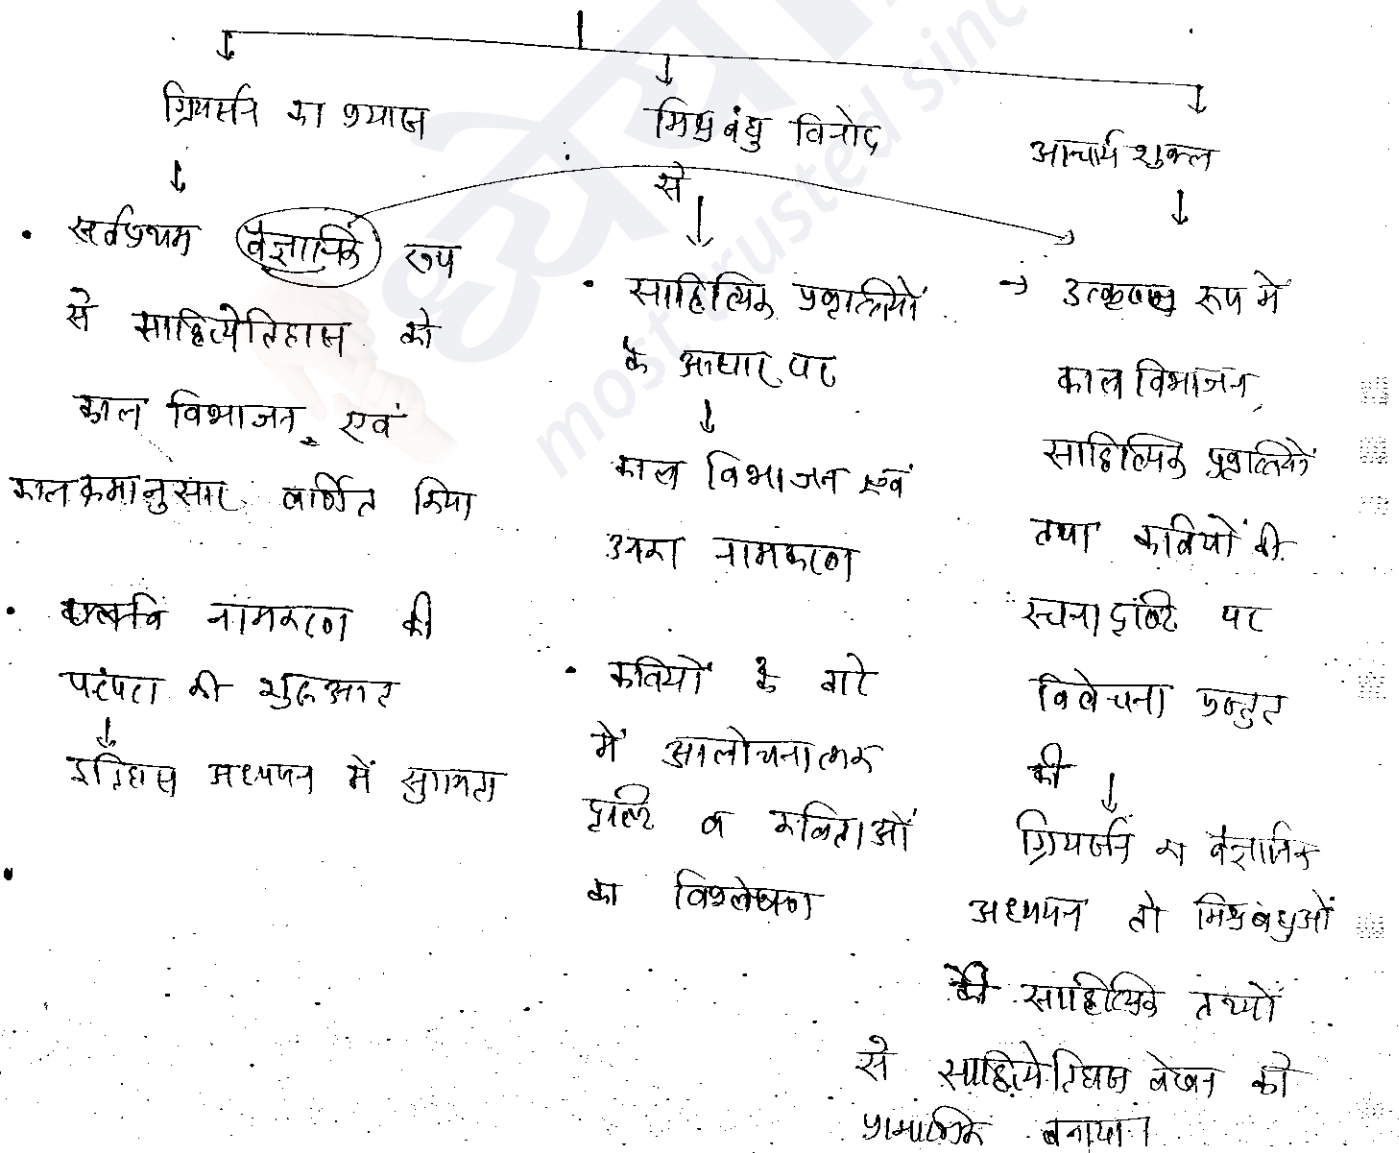 ग्रियर्सन का प्रयास
सर्वप्रथम वैज्ञानिक रूप
से साहित्येतिहास को
काल विभाजन, एवं
कालक्रमानुसार वर्णित किया
नामकरण की
परंपरा की शुरुआत
इतिहास अध्ययन में सुगमता
मिश्रबंधु विनोद
से
साहित्यिक प्रवृत्तियों
के आधार पर
काल विभाजन एवं
उनका नामकरण
कवियों के बारे
में आलोचनात्मक
दृष्टि व कविताओं
का विश्लेषण
आचार्य शुक्ल
→ उत्कृष्ट रूप में
काल विभाजन,
साहित्यिक प्रवृत्तियों
तथा कवियों की
रचना दृष्टि पर
विवेचना प्रस्तुत
की
ग्रियर्सन का वैज्ञानिक
अध्ययन तो मिश्रबंधुओं
की साहित्यिक तथ्यों
से साहित्येतिहास लेखन को
प्रामाणिक बनाया।
ध्येय
most trusted sinc